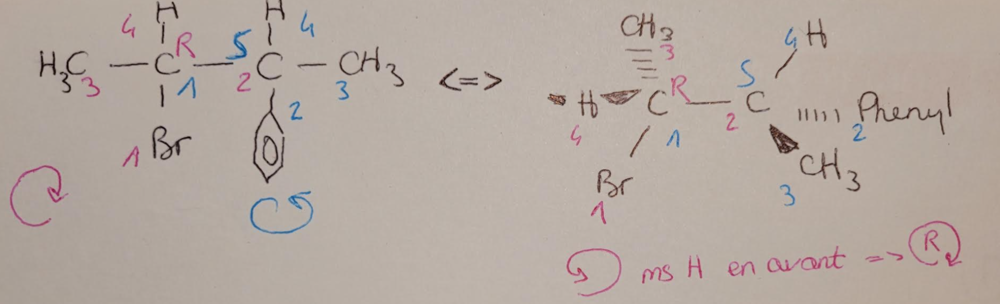 H H
4 R S 4
H₃C — C — C — CH₃
3 1 2 3
1 Br 2
<=>
CH₃ 4 H
3 R S
H C — C Phenyl
4 1 2 2
Br CH₃
1 3
ms H en avant => R